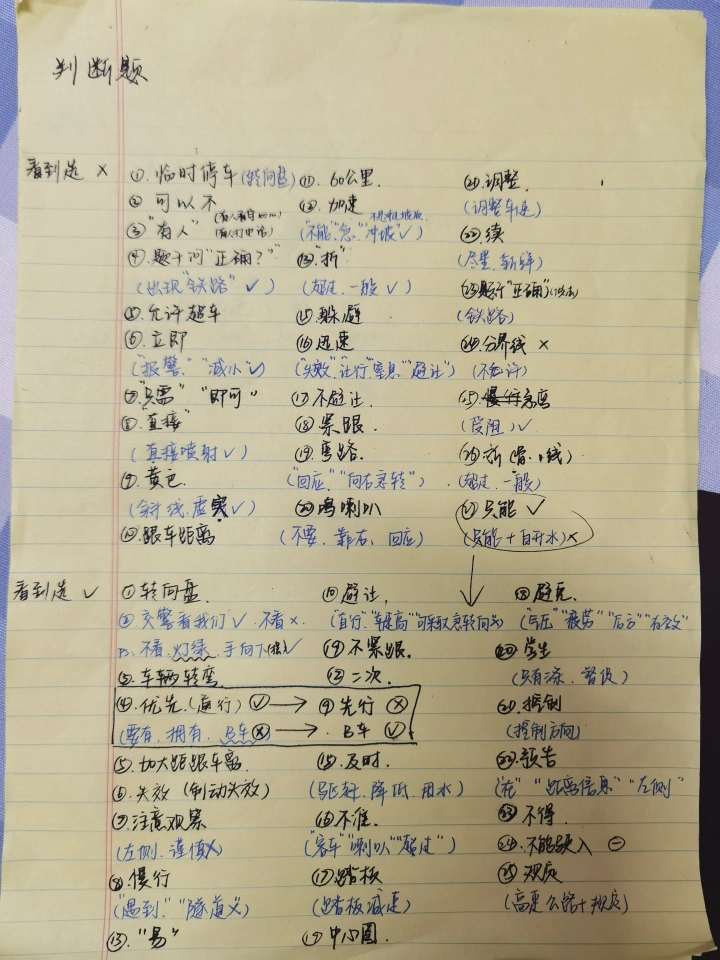 判断题
看到选 ×
① 临时停车 (转向盘)
② 可以不
③ "有人" (有人看守) (有人打电话)
④ 题干问"正确?"
(出现"铁路" ✓)
⑤ 允许超车
⑥ 立即
("报警""减小"✓)
⑦ "只需" "即可"
⑧ "直接"
(直接喷射 ✓)
⑨ 黄色
(斜线,虚实✓)
⑩ 跟车距离
⑪ 60公里.
⑫ 加速
("不能""急""冲坡"✓)
⑬ "折"
(超过.一般 ✓)
⑮ 躲避
⑯ 迅速
("失效""让行""窒息""避让")
⑰ 不避让.
⑱ 紧跟.
⑲ 弯路.
("回应""向右急转")
⑳ 鸣喇叭
(不要.靠右.回应)
㉑ 调整.
(调整车速)
㉒ 续
(尽量.斩鲜)
㉓ 题干"正确"
(铁路)
㉔ 分界线 ×
(不允许)
㉕
(受阻)✓
㉖ 折
(超过.一般)
㉗ 只能 ✓
(只能+白开水)×
看到选 ✓
① 转向盘
② 交警看我们✓.不看×
不看.灯绿.手向下✓
③ 车辆转弯
④ 优先.(直行) ✓ → ⑨ 先行 ×
(要有.拥有.B车×) → B车 ✓
⑤ 加大距跟车离
⑥ 失效 (制动失效)
⑦ 注意观察
(左侧.谨慎×)
⑧ 慢行
("遇到""隧道"×)
⑬ "易"
⑩ 避让.
("直行""车速高""可采取急转向"×)
⑪ 不紧跟.
⑫ 二次.
⑮ 及时.
(驱赶.降低.用水)
⑯ 不准.
("客车""喇叭""超过")
⑰ 踏板
(踏板减速)
⑲ 中心圈.
⑱ 避免.
("气压""疲劳""后方""有效")
⑳ 学生
(只有冻.暂役)
㉑ 控制
(控制方向)
㉒ 预告
("花""距离信息""左侧"
㉓ 不得.
㉔ 不能驶入 ⊖
㉕ 规定
(高速公路+规定)